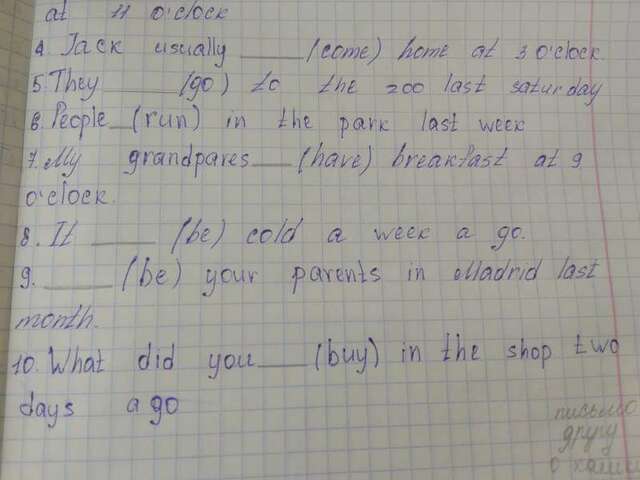 at 11 o'clock
4. Jack usually ____ (come) home at 3 o'clock.
5. They ____ (go) to the zoo last saturday
6. People __ (run) in the park last week
7. My grandpares ___ (have) breakfast at 9
o'clock.
8. It ____ (be) cold a week a go.
9. ____ (be) your parents in Madrid last
month.
10. What did you ___ (buy) in the shop two
days ago
письмо
другу
о